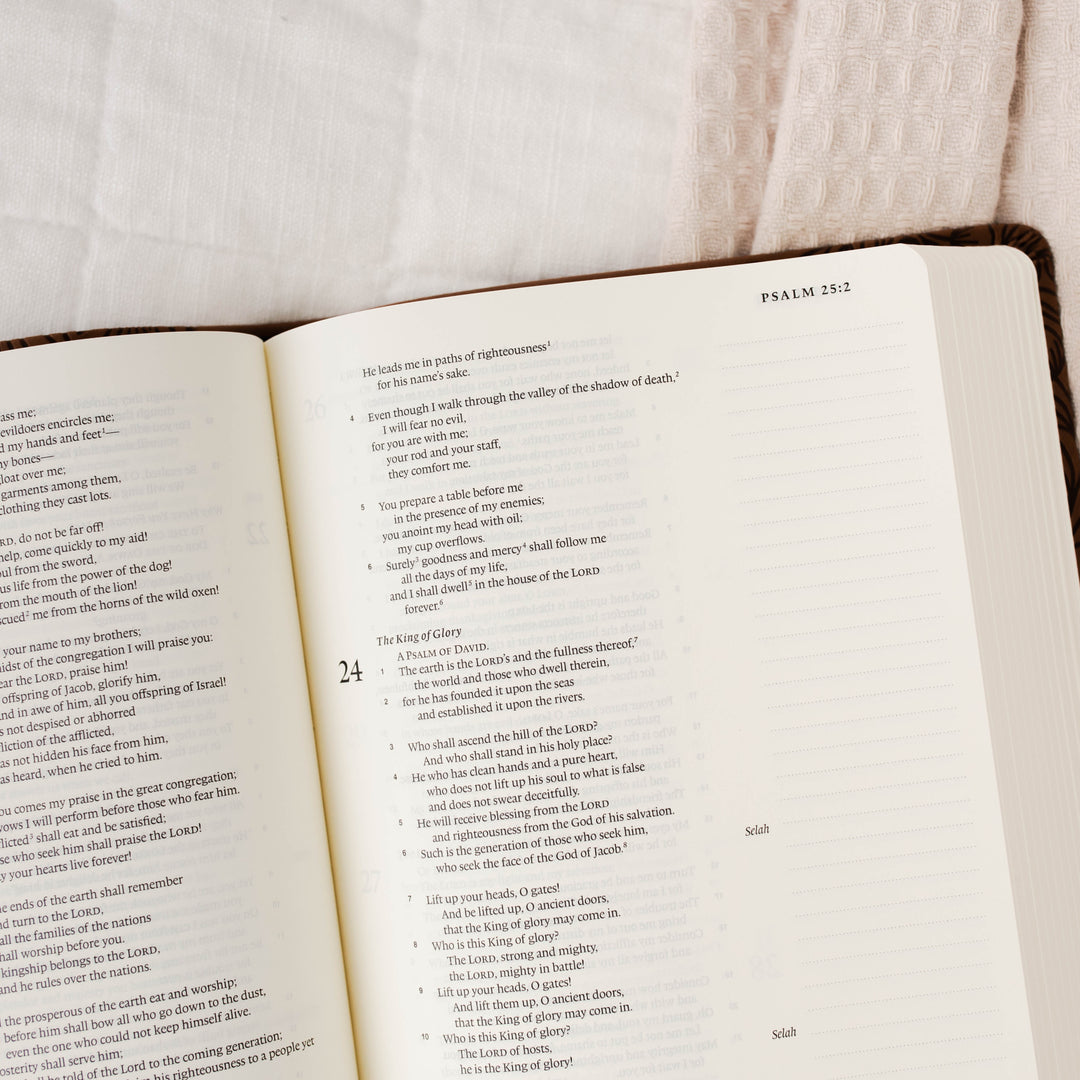 ass me;
evildoers encircles me;
d my hands and feet¹—
y bones—
gloat over me;
garments among them,
clothing they cast lots.
RD, do not be far off!
help, come quickly to my aid!
ul from the sword,
us life from the power of the dog!
rom the mouth of the lion!
scued² me from the horns of the wild oxen!
your name to my brothers;
idst of the congregation I will praise you:
ear the LORD, praise him!
offspring of Jacob, glorify him,
nd in awe of him, all you offspring of Israel!
s not despised or abhorred
liction of the afflicted,
as not hidden his face from him,
as heard, when he cried to him.
ou comes my praise in the great congregation;
vows I will perform before those who fear him.
flicted³ shall eat and be satisfied;
se who seek him shall praise the LORD!
y your hearts live forever!
e ends of the earth shall remember
nd turn to the LORD,
all the families of the nations
hall worship before you.
kingship belongs to the LORD,
and he rules over the nations.
the prosperous of the earth eat and worship;
before him shall bow all who go down to the dust,
even the one who could not keep himself alive.
osterity shall serve him;
be told of the Lord to the coming generation;
his righteousness to a people yet
PSALM 25:2
He leads me in paths of righteousness¹
for his name's sake.
4 Even though I walk through the valley of the shadow of death,²
I will fear no evil,
for you are with me;
your rod and your staff,
they comfort me.
5 You prepare a table before me
in the presence of my enemies;
you anoint my head with oil;
my cup overflows.
6 Surely³ goodness and mercy⁴ shall follow me
all the days of my life,
and I shall dwell⁵ in the house of the LORD
forever.⁶
The King of Glory
24 A PSALM OF DAVID.
1 The earth is the LORD's and the fullness thereof,⁷
the world and those who dwell therein,
2 for he has founded it upon the seas
and established it upon the rivers.
3 Who shall ascend the hill of the LORD?
And who shall stand in his holy place?
4 He who has clean hands and a pure heart,
who does not lift up his soul to what is false
and does not swear deceitfully.
5 He will receive blessing from the LORD
and righteousness from the God of his salvation.
6 Such is the generation of those who seek him,
who seek the face of the God of Jacob.⁸ Selah
7 Lift up your heads, O gates!
And be lifted up, O ancient doors,
that the King of glory may come in.
8 Who is this King of glory?
The LORD, strong and mighty,
the LORD, mighty in battle!
9 Lift up your heads, O gates!
And lift them up, O ancient doors,
that the King of glory may come in.
10 Who is this King of glory?
The LORD of hosts,
he is the King of glory! Selah